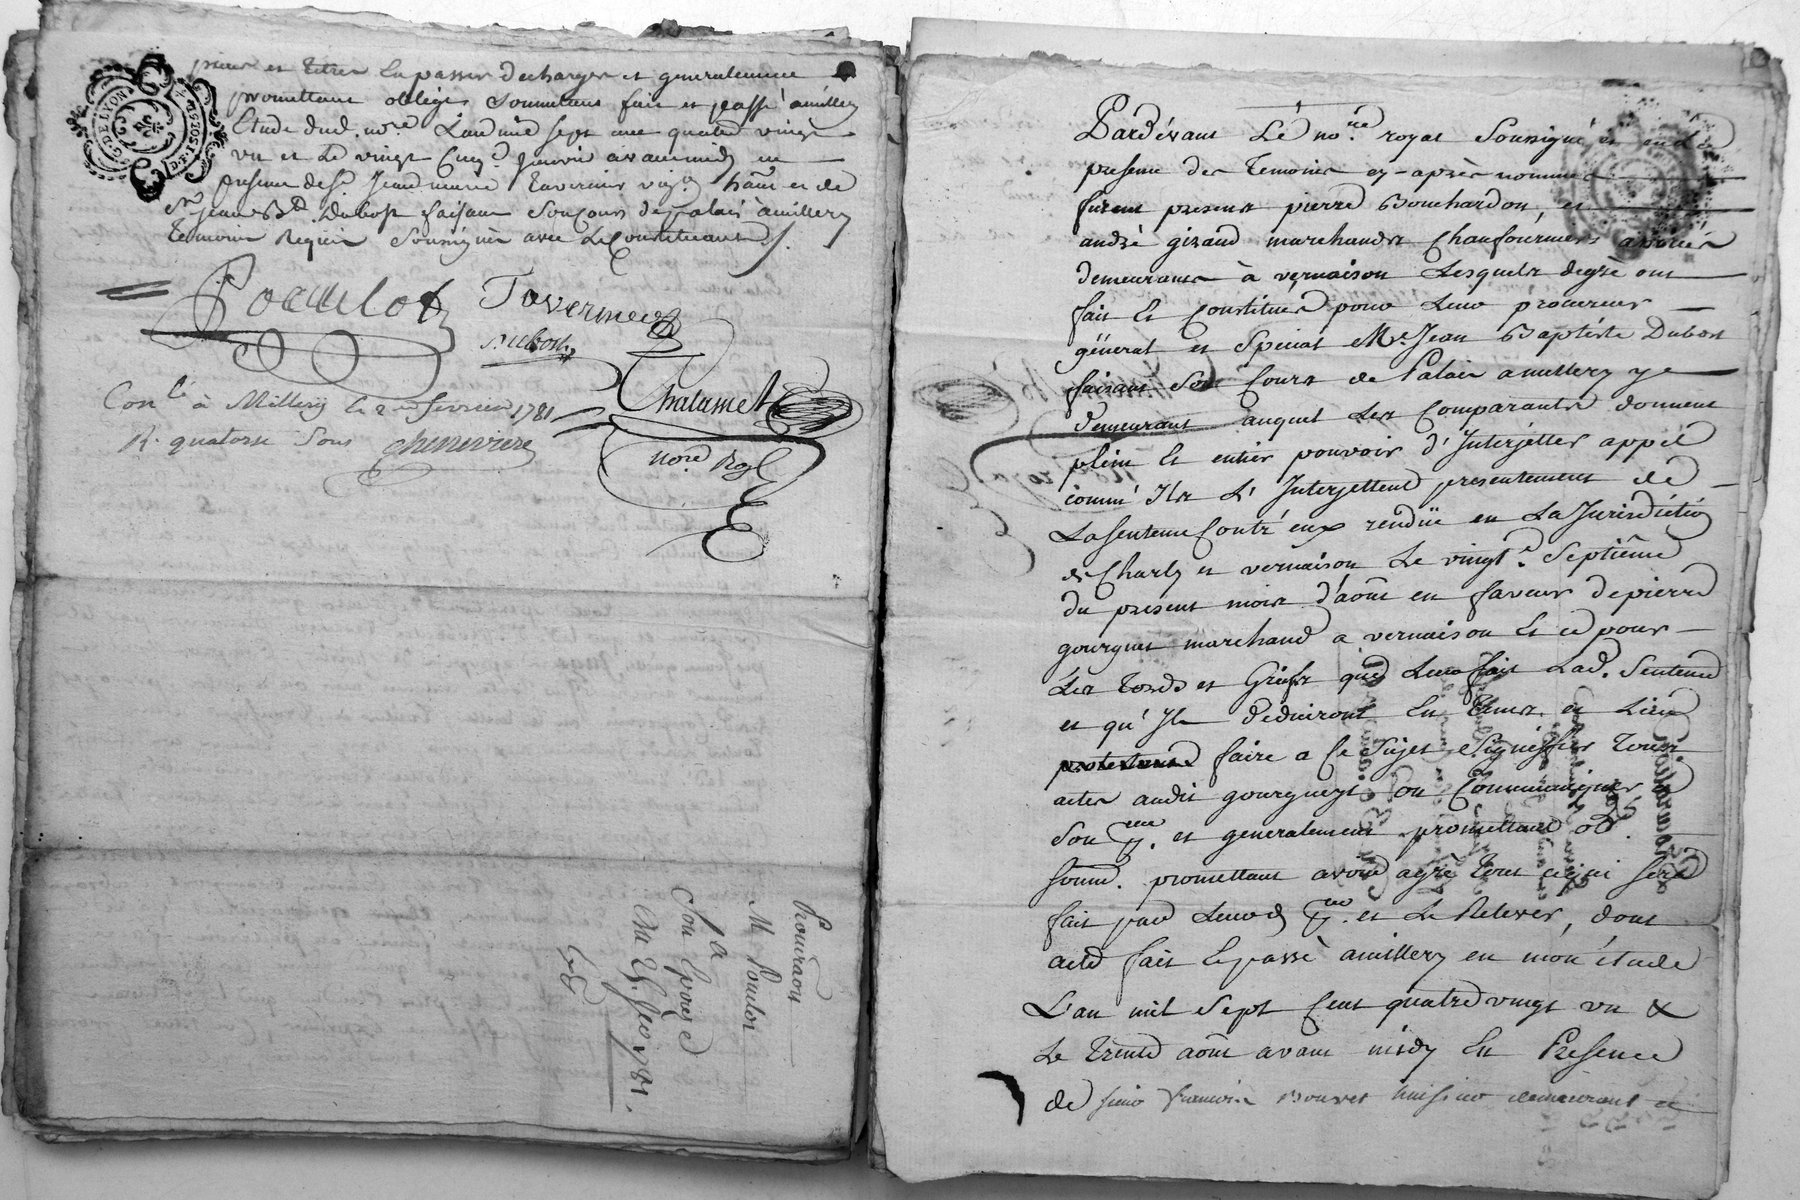 G. DE LYON
pieces et titres En passer decharges et generalement
promettant obliges Soumettant fait et passé a millery
Etude dud. no.re L'an mil sept cent quatre vingt
un et Le vingt Cinq Janvier avant midy en
presence de s.r Jean marie Tavernier vig.n ham et de
S.r Jean B.te Dubost faisant Son Cours de Palais à millery
temoins Requis Soussignés avec Le Constituant
Poculot Tavernier
Dubost
Chalamet
Con.lé à Millery le 2 fevrier 1781
R. quatorze Sous Cheneviere
no.re Roy.l
Procuraon
M Poculot
a
Son Epouse
Du 25. Jer 1781.
Pardévant Le no.re royal Soussigné et en La
presence des Temoins cy-après nommés
furent presents pierre Bouchardon, et
andré giraud marchands Chaufourniers associés
demeurants à vernaison Lesquels de gré ont
fait Et Constitué pour Leur procureur
général et Special M.e Jean Baptiste Dubost
faisant Son Cours de Palais a millery y
demeurant auquel Les Comparants donnent
plein Et entier pouvoir d'Interjetter appel
comm' Ils L'Interjettent presentement de
La Sentence Contr'eux rendüe en La Jurisdiction
de Charly et vernaison Le vingt Septième
du present mois d'août en faveur de pierre
gourguet marchand a vernaison Et ce pour
Les Torts et Griefs que Leur fait Lad. Sentence
et qu'Ils deduiront En Tems et Lieu
protestant faire a Ce Sujet Signiffier Tous
actes audit gourguet ou Communiquer
Son et generalement promettant ob.
soum. promettant avoir agréé tout ce qui sera
fait par Leurd. et Le Relever, dont
acte fait Et passé a millery en mon étude
L'an mil Sept Cent quatre vingt un &
Le Trente août avant midy En Presence
de sieur francois Bouvet huissier demeurant a